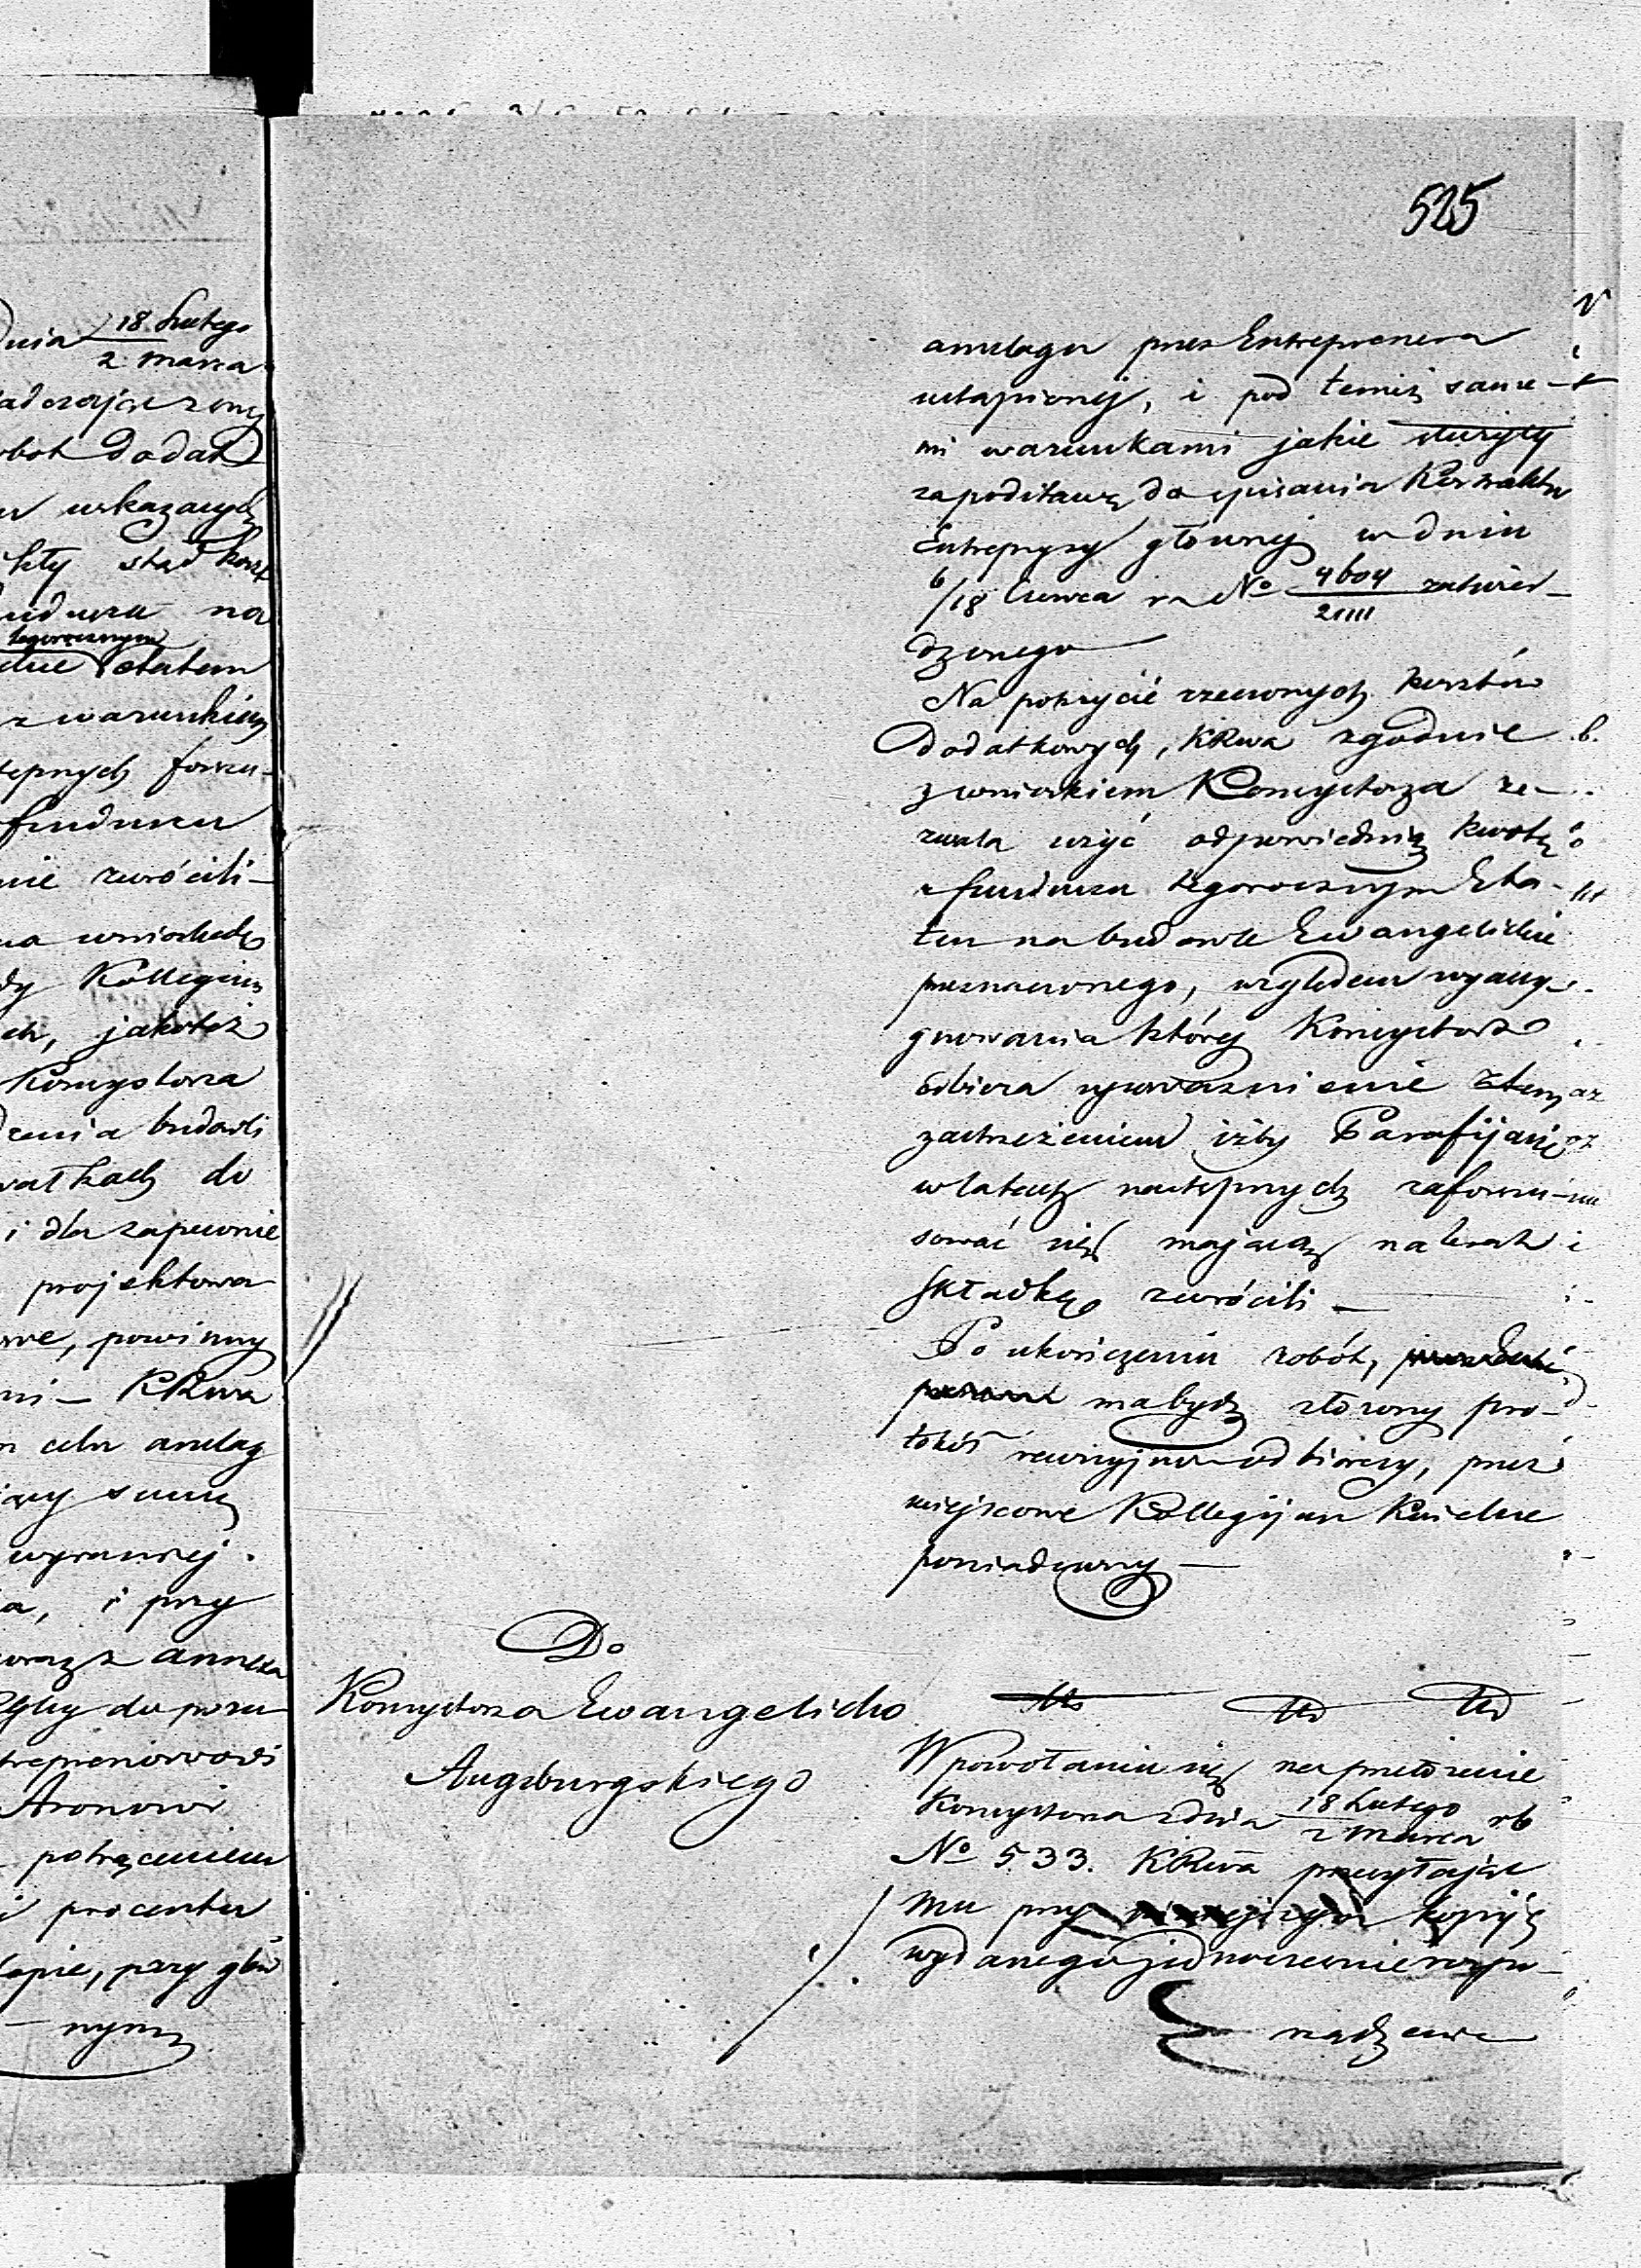 Dnia 18 Lutego
2 Marca
robot dodat
wskazanych
kły stąd kosz
funduszu na
tegorocznym
Etatem
z warunkiem
stępnych forszu-
funduszu
nie zwrócili —
na wniosek
Kollegium
ch, jakoteż
Konsystorza
dzenia budowli
watkach do
i dla zapewnie
projektowa
we, powinny
ni — KRwa
celu anszlag
summy
wyrażonej.
ia, i przy
wraz z annexa
do poru
trepreniorowi
Aronowi
potrąceniem
i procentu
przy głów
— nym
525
anszlagu przez Entreprenera
ustąpionej, i pod temiż same-
mi warunkami jakie służyły
za podstawę do spisania Kontraktu
Entrepryzy głównej w dniu
6/18 Czerwca r.z. No 4604/21111 zatwier-
dzonego
Na pokrycie rzeczonych kosztów
dodatkowych, KRwa zgodnie
z wnioskiem Konsystorza ze-
zwala użyć odpowiednią kwotę
z funduszu tegorocznym Eta-
tem na budowle Ewangelickie
przeznaczonego, względem wyassy-
gnowania której Konsystorz
odbiera upoważnienie z tem
zastrzeżeniem iżby Parafijanie
w latach następnych zaforszu-
sować się mającą należność
składkę zwrócili —
Po ukończeniu robót,
ma bydź złożony pro-
tokół rewizyjno-odbiorczy, przez
miejscowe Kollegijum Kościelne
poświadczony —
Do
Konsystorza Ewangelicko
Augsburgskiego
W powołaniu się na przełożenie
Konsystorza z dnia 18 Lutego / 2 Marca rb
No 533. KRwa przesyłając
mu przy niniejszym kopiję
wydanego jednocześnie rozpo-
rządzenia